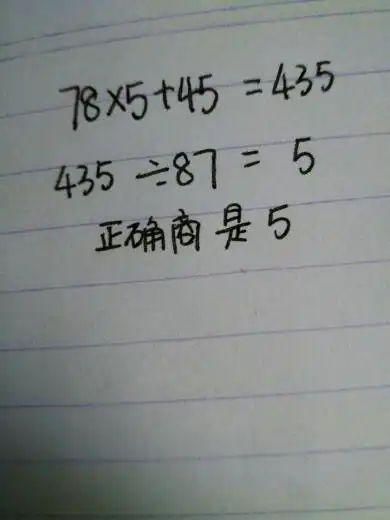 78×5+45=435
435÷87=5
正确商是5